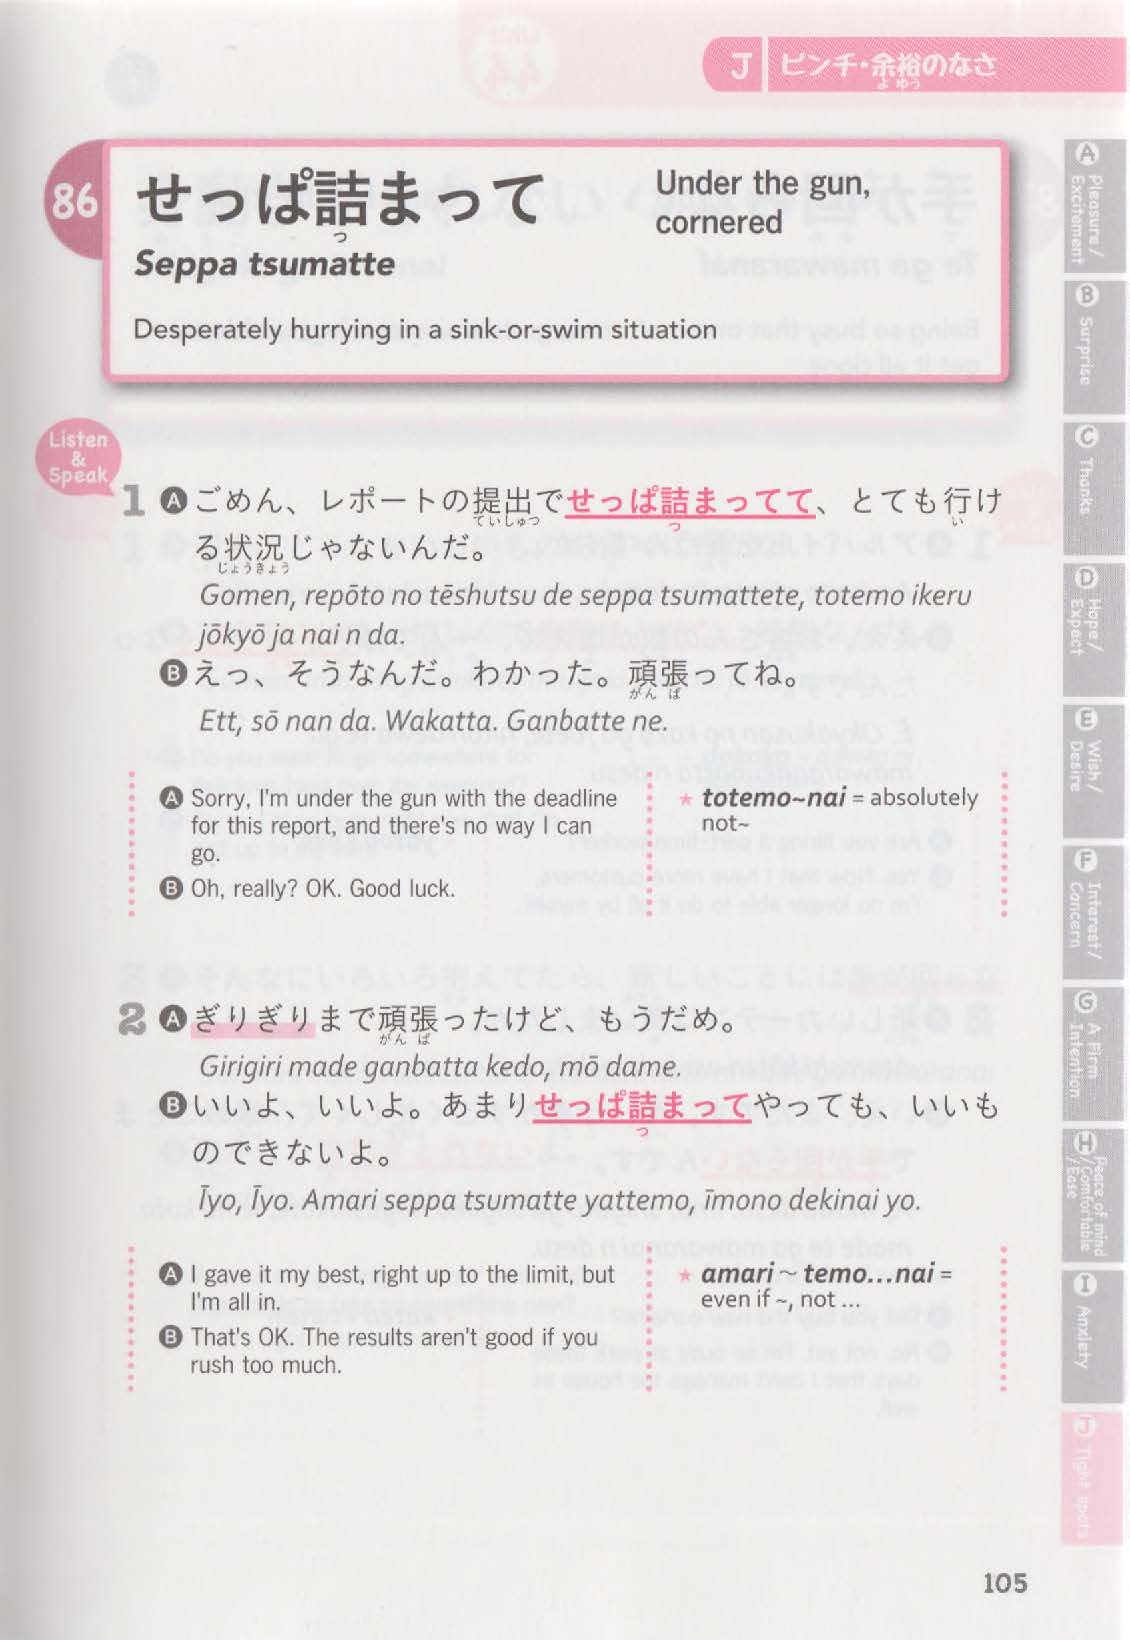 J ピンチ・余裕のなさ
よ ゆう
86
せっぱ詰まって
つ
Seppa tsumatte
Under the gun,
cornered
Desperately hurrying in a sink-or-swim situation
Listen
&
Speak
1 A ごめん、レポートの提出でせっぱ詰まってて、とても行け
ていしゅつ つ い
る状況じゃないんだ。
じょうきょう
Gomen, repōto no tēshutsu de seppa tsumattete, totemo ikeru
jōkyō ja nai n da.
B えっ、そうなんだ。わかった。頑張ってね。
がん ば
Ett, sō nan da. Wakatta. Ganbatte ne.
A Sorry, I'm under the gun with the deadline
for this report, and there's no way I can
go.
B Oh, really? OK. Good luck.
★ totemo~nai = absolutely
not~
2 A ぎりぎりまで頑張ったけど、もうだめ。
がん ば
Girigiri made ganbatta kedo, mō dame.
B いいよ、いいよ。あまりせっぱ詰まってやっても、いいも
つ
のできないよ。
Īyo, Īyo. Amari seppa tsumatte yattemo, īmono dekinai yo.
A I gave it my best, right up to the limit, but
I'm all in.
B That's OK. The results aren't good if you
rush too much.
★ amari ~ temo...nai =
even if ~, not ...
A Pleasure/
Excitement
B Surprise
C Thanks
D Hope/
Expect
E Wish/
Desire
F Interest/
Concern
G A Firm
Intention
H Peace of mind
/Comfortable
/Ease
I Anxiety
J Tight spots
105